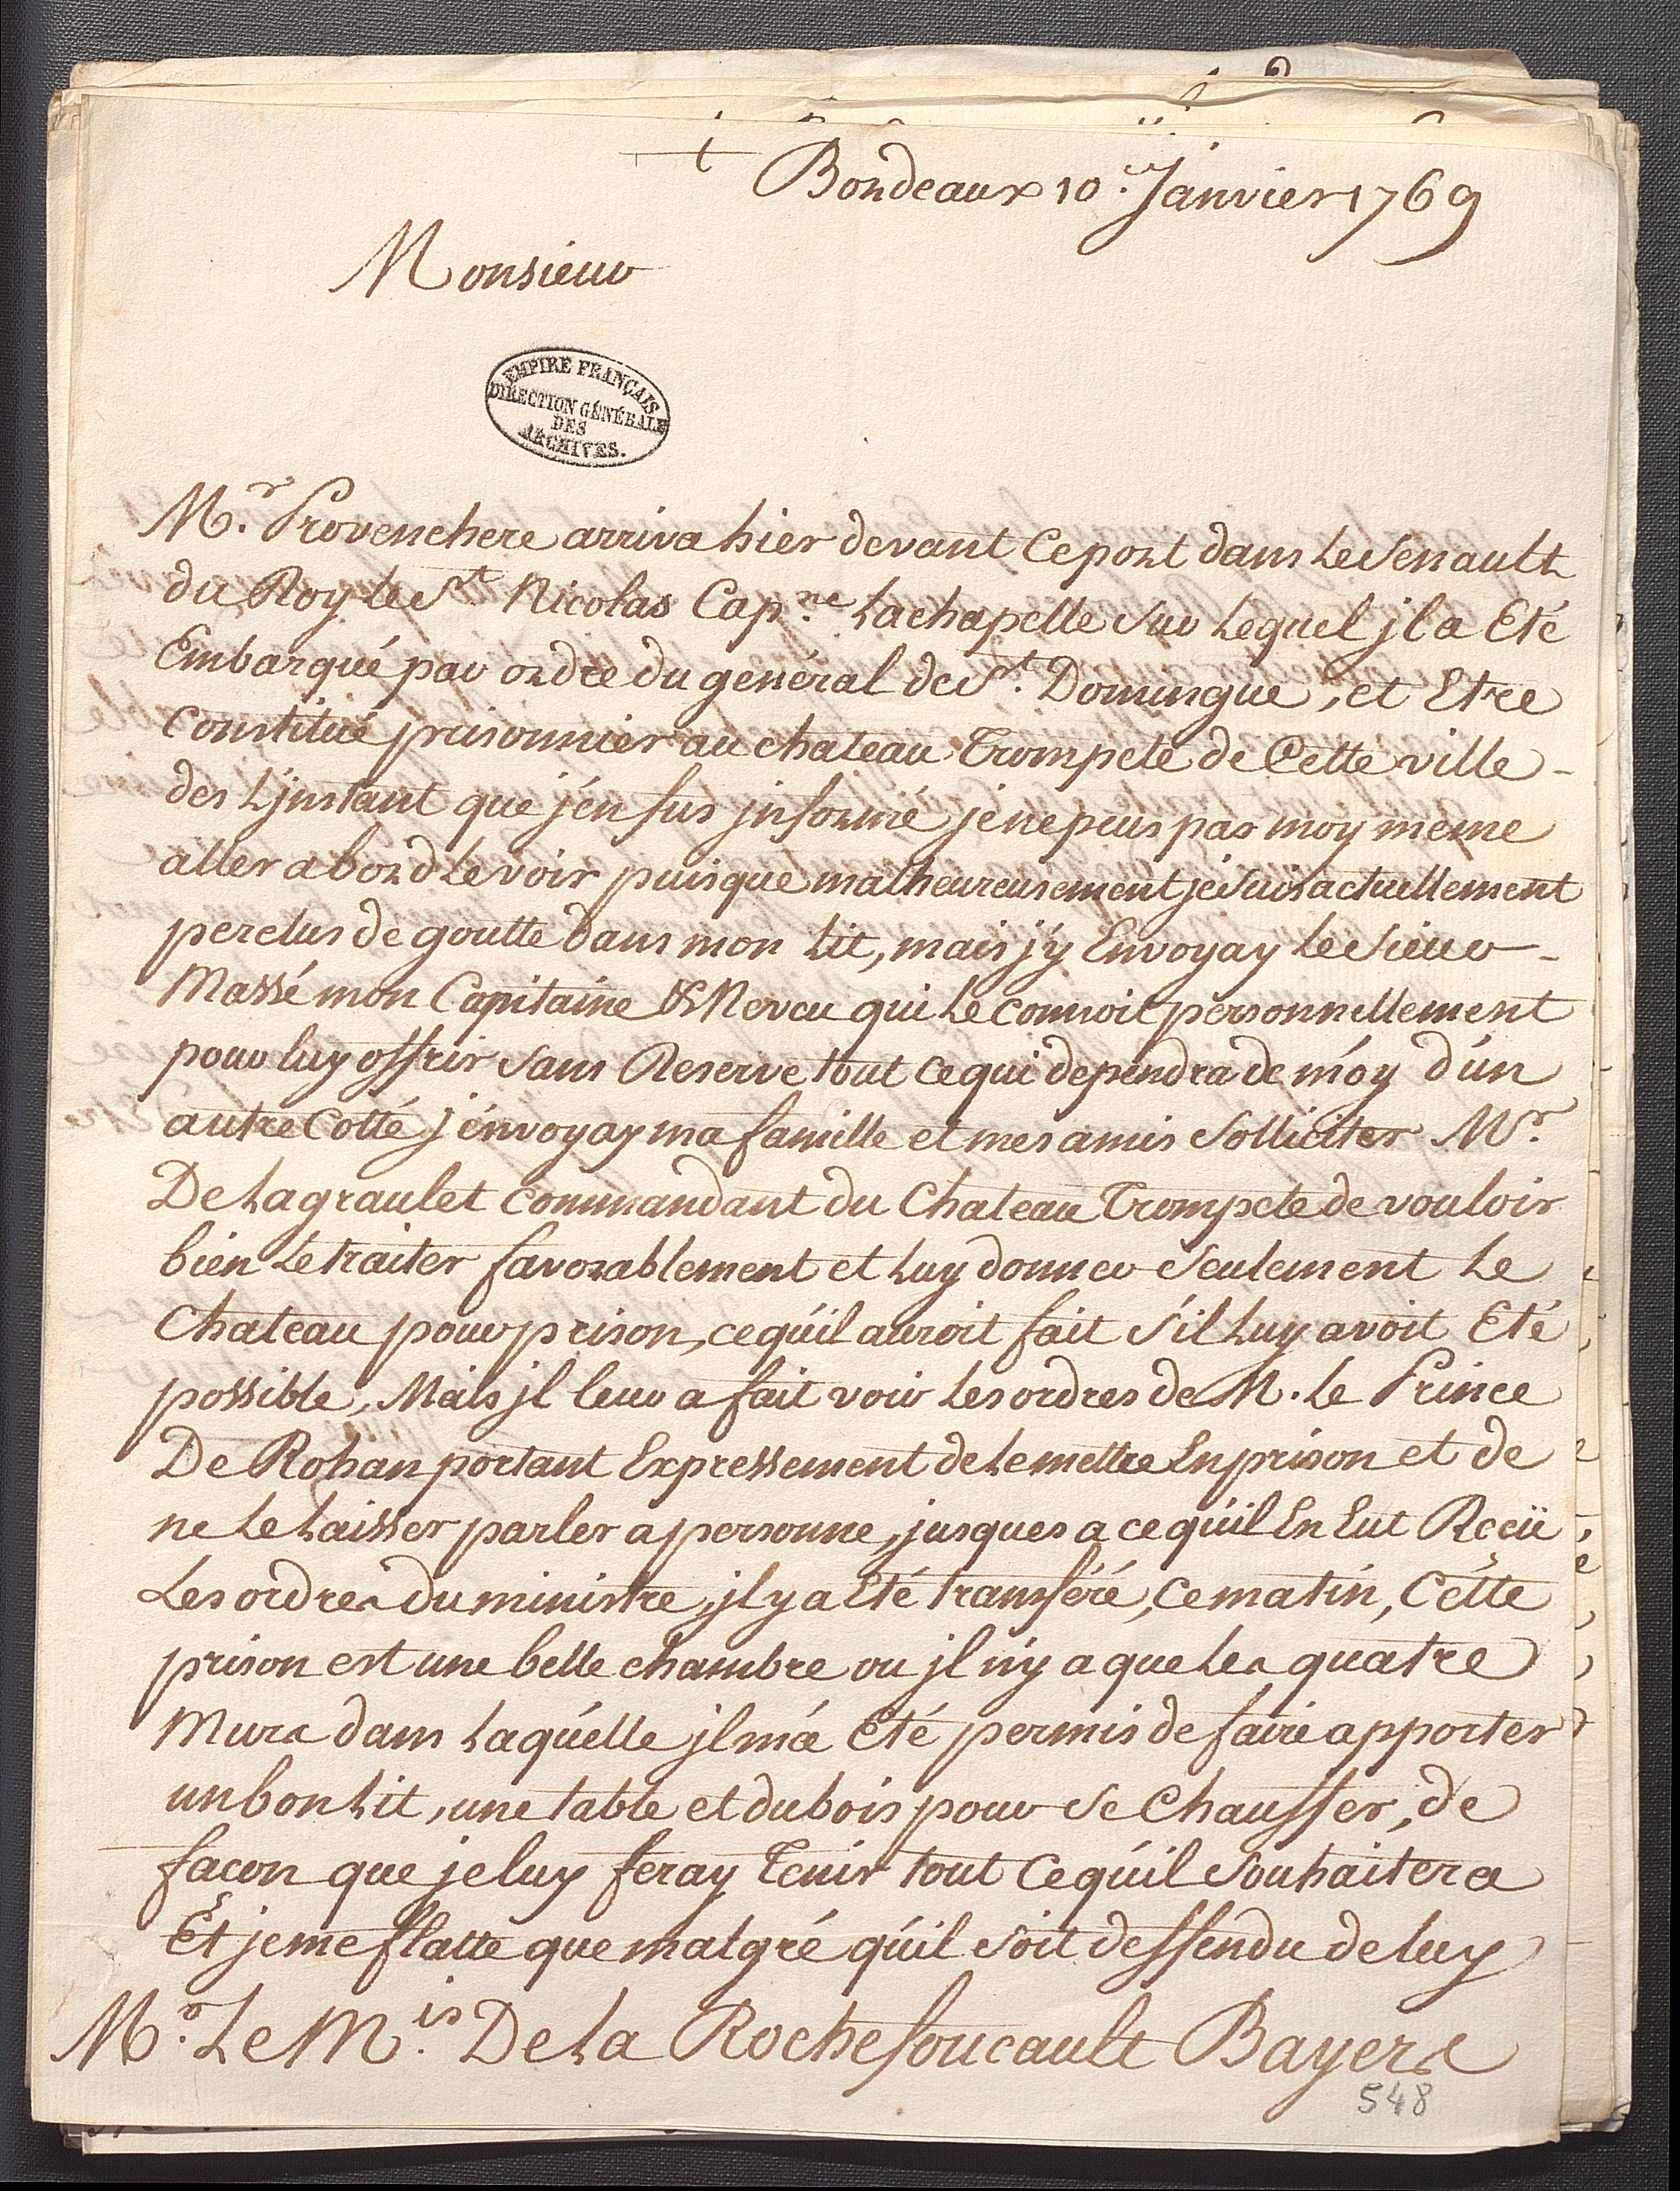 Bordeaux 10. Janvier 1769
Monsieur
EMPIRE FRANÇAIS
DIRECTION GÉNÉRALE
DES
ARCHIVES.
Mr. Provenchere arriva hier devant Ce port dans Le Senault
du Roy le St. Nicolas Capne. Lachapelle Sur Lequel jl a Eté
Embarqué par ordre du genéral de St. Domingue, et Etre
Constitué prisonnier au chateau Trompete de Cette ville -
des L'jnstant que j'en fus jnformé je ne peus pas moy meme
aller abord Le voir puisque malheureusement je Suis actuellement
perclus de goutte dans mon Lit, mais j'y Envoyay Le Sieur -
Massé mon Capitaine & Neveu qui Le connoit personnellement
pour luy offrir Sans Reserve tout ce qui dependra de moy d'un
autre Cotté j'envoyay ma famille et mes amis Solliciter Mr.
De Lagraulet commandant du Chateau Trompete de vouloir
bien Le traiter favorablement et Luy donner Seulement Le
Chateau pour prison, ce qu'il auroit fait S'il Luy avoit Eté
possible, Mais jl leur a fait voir Les ordres de M. Le Prince
De Rohan portant Expressement de Le mettre En prison et de
ne Le Laisser parler a personne, jusques a ce qu'il En Eut Reçeü
Les ordres du ministre, jl y a Eté transféré, ce matin, Cette
prison est une belle chambre ou jl n'y a que Les quatre
Murs dans Laquélle jl m'a Eté permis de faire apporter
un bon Lit, une table et du bois pour Se Chauffer, de
façon que je luy feray Tenir tout Ce qu'il Souhaitera
Et je me flatte que malgré qu'il Soit deffendu de luy
Mr. Le Mis. De La Rochefoucault Bayers
548